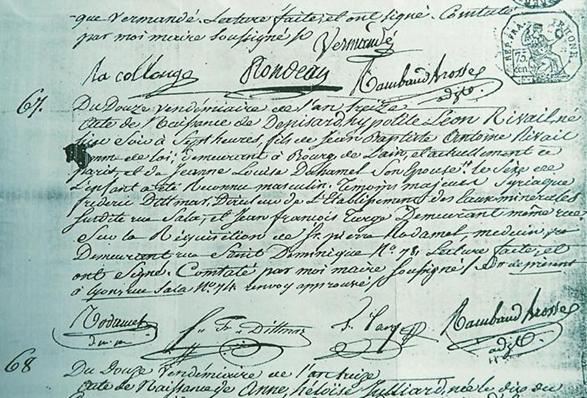 que Vermandé. Lecture faite, et ont signé. Constaté
par moi maire soussigné
Vermandé
REP. FRA.
75
La collonge Rambaud Brosse
67. Du Douze vendemiaire de l'an treize
Acte de Naissance de Denisard hypolite Léon Rivail né
hier Soir à Sept heures, fils de Jean Baptiste Antoine Rivail
homme de loi, demeurant à Bourg de l'ain, et actuellement à
paris, et de Jeanne Louise Duhamel Son épouse. Le Sexe de
L'enfant a été reconnu masculin. témoins majeurs Syriaque
frideric Dittmar, Directeur de l'Etablissement des Eaux minerales
susdite rue Sala, et Jean françois Targe Demeurant même rue
Sur la Réquisition de Sr. pierre Radamel, medecin,
Demeurant rue Saint Dominique No. 78. Lecture faite, et
ont signé. Constaté par moi maire soussigné
à Lyon, rue Sala No. 74 renvoy approuvé
Radamel Dittmar Rambaud Brosse
adjt
68 Du Douze Vendemiaire de l'an treize
Acte de Naissance de Anne, héloïse Julliard, née le dix du